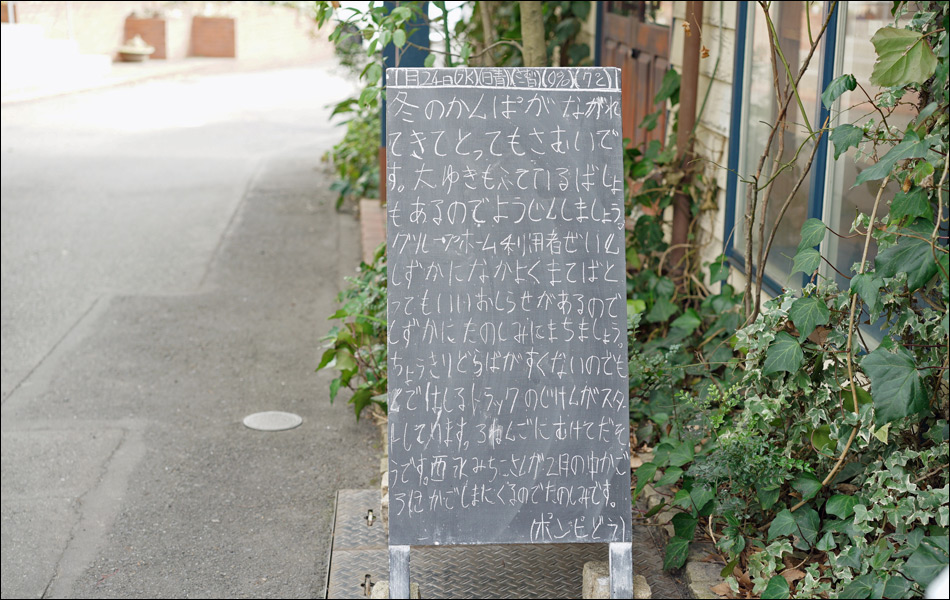 1月24日(水)(日青)(0%)(7℃)
冬のかんぱがながれ
てきてとってもさむいで
す。大ゆきもふているばしょ
もあるのでようじんしましょう。
グループホーム利用者ぜいん
しずかになかよくまてばと
ってもいいおしらせがあるので
しずかにたのしみにまちましょう。
ちょうきりどらばがすくないのでも
とではしるトラックのじけんがスタ
トしております。3ねんごにむけてだそ
うです。西永みちこさんが2月の中かご
ろほかでしまたくるのでたのしみです。
(ポンピどう)